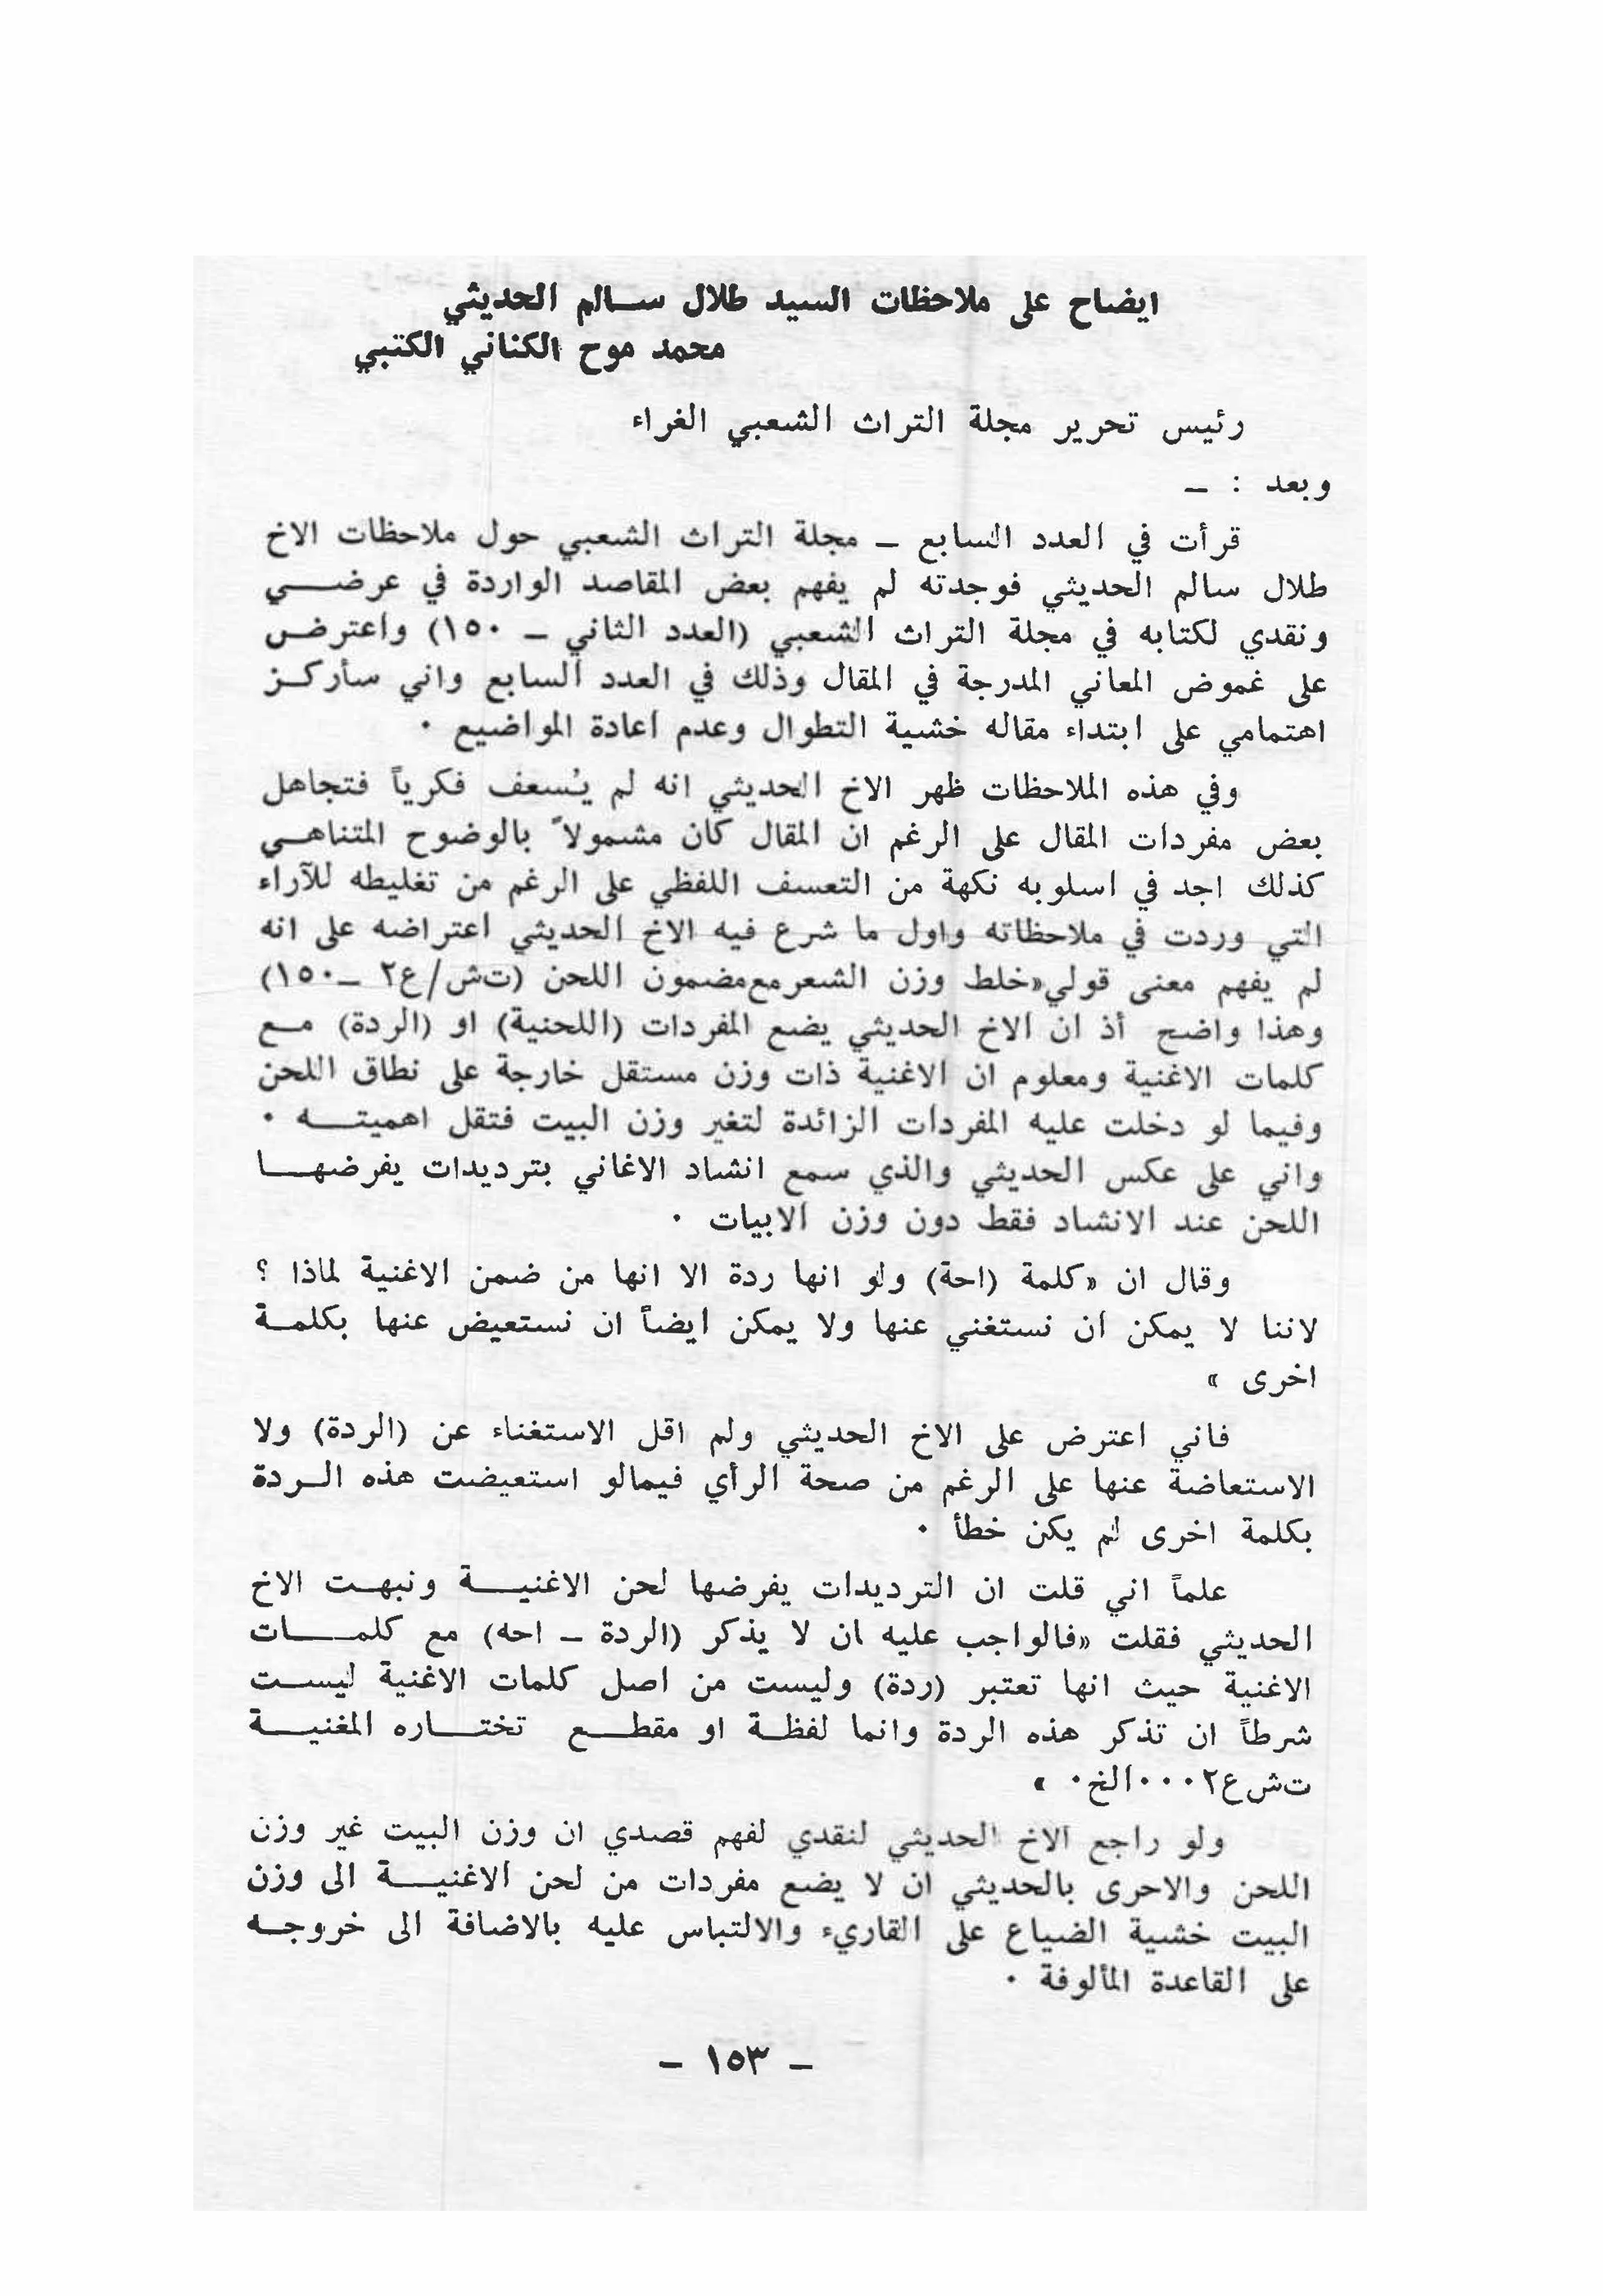 ايضاح على ملاحظات السيد طلال سالم الحديثي
محمد موح الكناني الكتبي
رئيس تحرير مجلة التراث الشعبي الغراء
وبعد : ـ
قرأت في العدد السابع ـ مجلة التراث الشعبي حول ملاحظات الاخ
طلال سالم الحديثي فوجدته لم يفهم بعض المقاصد الواردة في عرضي
ونقدي لكتابه في مجلة التراث الشعبي (العدد الثاني ـ ١٥٠) واعترض
على غموض المعاني المدرجة في المقال وذلك في العدد السابع واني سأركز
اهتمامي على ابتداء مقاله خشية التطوال وعدم اعادة المواضيع ٠
وفي هذه الملاحظات ظهر الاخ الحديثي انه لم يُسعف فكرياً فتجاهل
بعض مفردات المقال على الرغم ان المقال كان مشمولاً بالوضوح المتناهي
كذلك اجد في اسلوبه نكهة من التعسف اللفظي على الرغم من تغليطه للآراء
التي وردت في ملاحظاته واول ما شرع فيه الاخ الحديثي اعتراضه على انه
لم يفهم معنى قولي«خلط وزن الشعر مع مضمون اللحن (ت ش/ع٢ ـ ١٥٠)
وهذا واضح أذ ان الاخ الحديثي يضع المفردات (اللحنية) او (الردة) مع
كلمات الاغنية ومعلوم ان الاغنية ذات وزن مستقل خارجة على نطاق اللحن
وفيما لو دخلت عليه المفردات الزائدة لتغير وزن البيت فتقل اهميته ٠
واني على عكس الحديثي والذي سمع انشاد الاغاني بترديدات يفرضها
اللحن عند الانشاد فقط دون وزن الابيات ٠
وقال ان «كلمة (احة) ولو انها ردة الا انها من ضمن الاغنية لماذا ؟
لاننا لا يمكن ان نستغني عنها ولا يمكن ايضاً ان نستعيض عنها بكلمة
اخرى »
فاني اعترض على الاخ الحديثي ولم اقل الاستغناء عن (الردة) ولا
الاستعاضة عنها على الرغم من صحة الرأي فيمالو استعيضت هذه الردة
بكلمة اخرى لم يكن خطأ ٠
علماً اني قلت ان الترديدات يفرضها لحن الاغنية ونبهت الاخ
الحديثي فقلت «فالواجب عليه ان لا يذكر (الردة ـ احه) مع كلمات
الاغنية حيث انها تعتبر (ردة) وليست من اصل كلمات الاغنية ليست
شرطاً ان تذكر هذه الردة وانما لفظة او مقطع تختاره المغنية
ت ش ع٢٠٠٠الخ٠ »
ولو راجع الاخ الحديثي لنقدي لفهم قصدي ان وزن البيت غير وزن
اللحن والاحرى بالحديثي ان لا يضع مفردات من لحن الاغنية الى وزن
البيت خشية الضياع على القاريء والالتباس عليه بالاضافة الى خروجه
على القاعدة المألوفة ٠
ـ ١٥٣ ـ